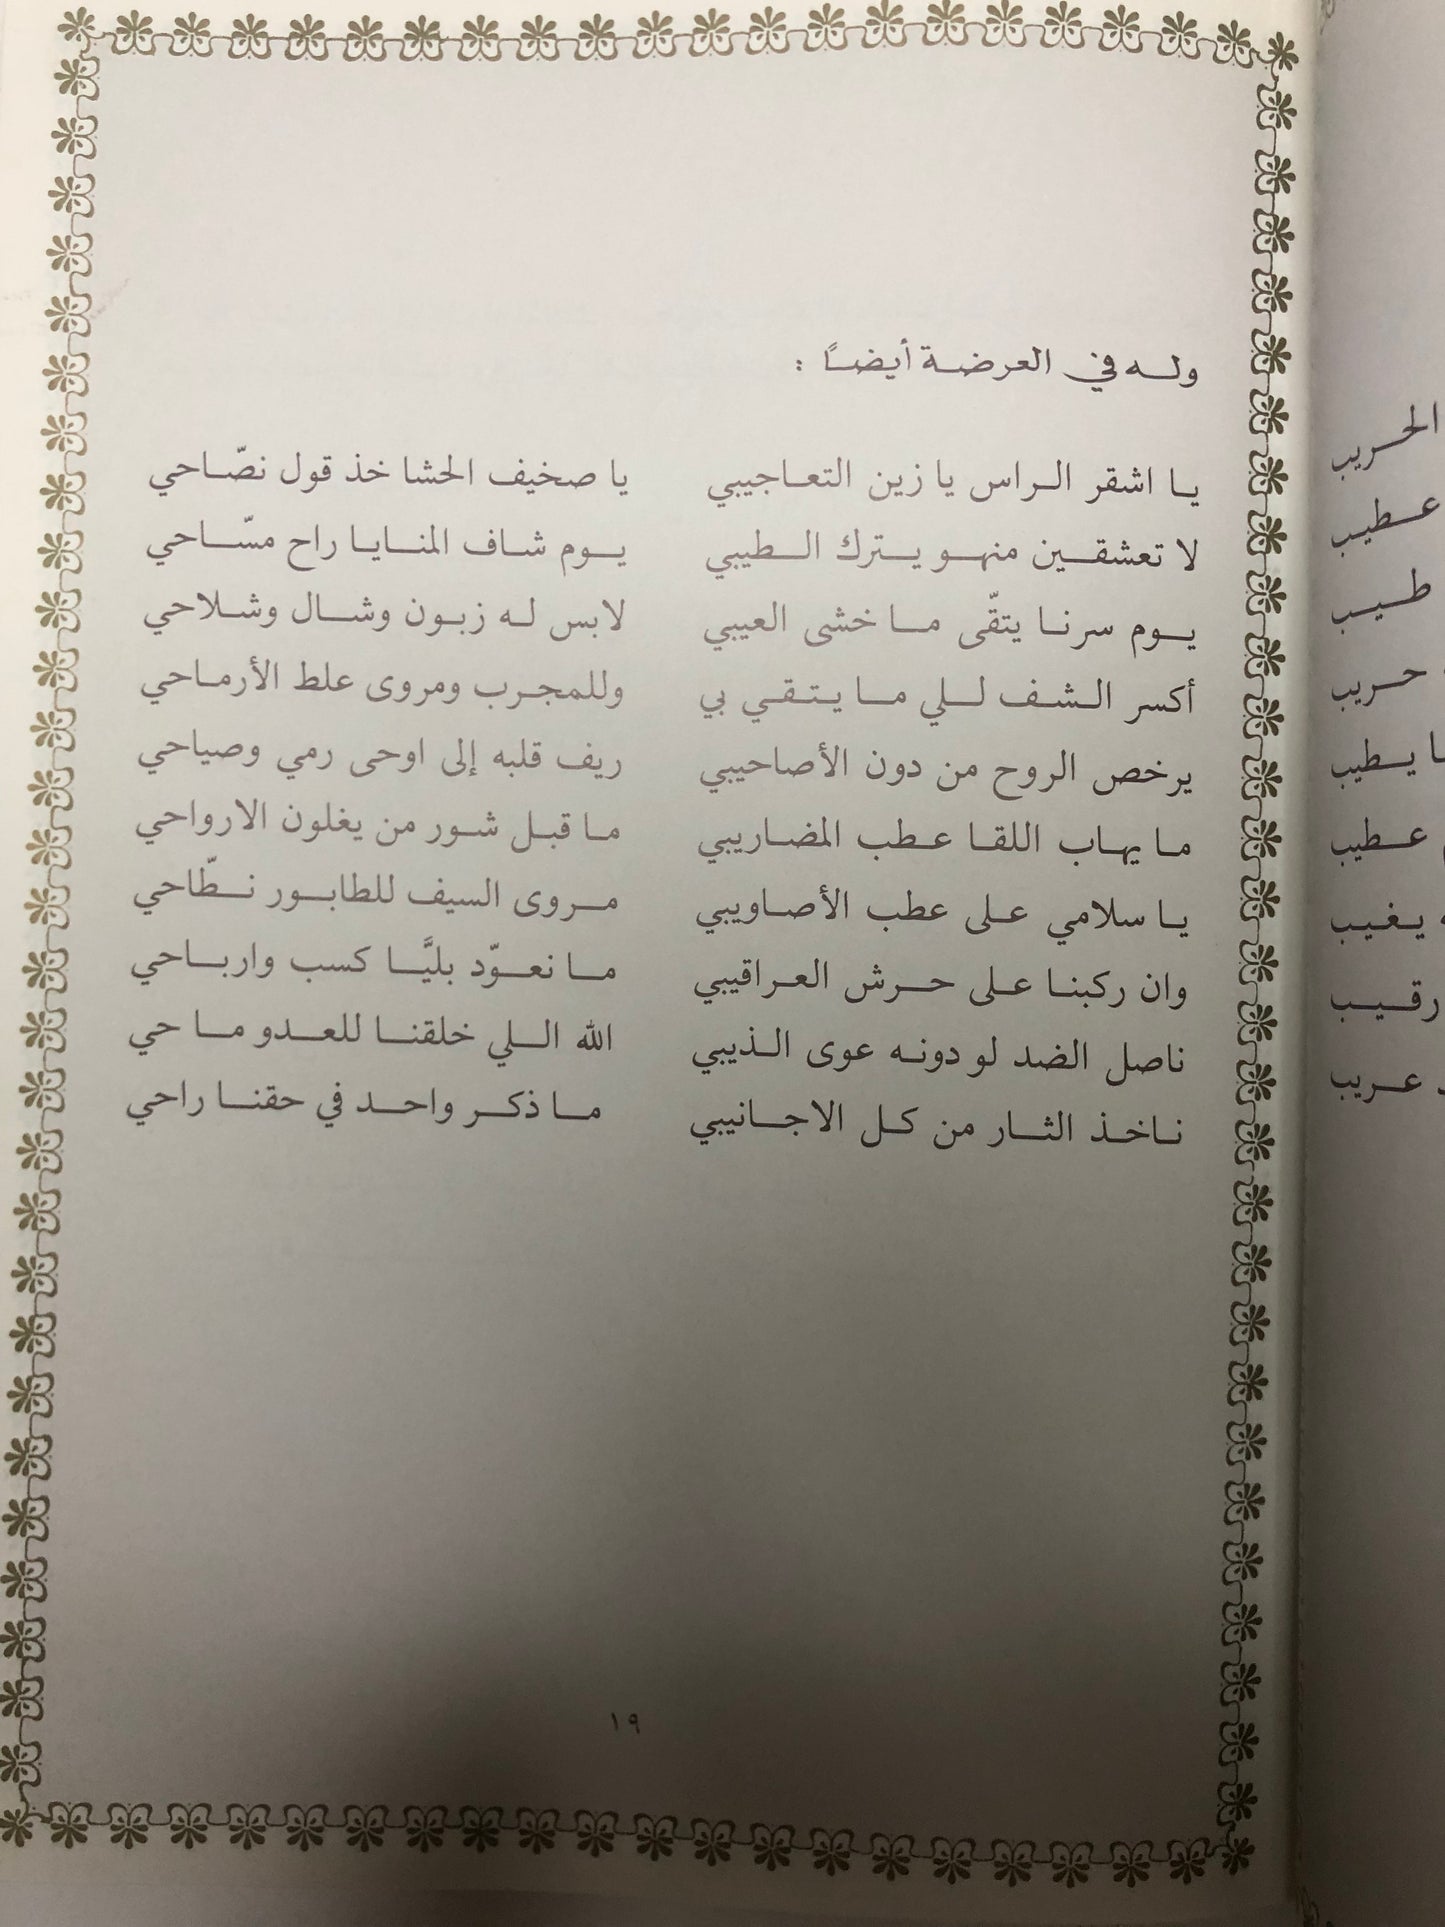 وله في العرضة أيضاً :
يا اشقر الراس يا زين التعاجيبي يا صخيف الحشا خذ قول نصّاحي
لا تعشقين منهو يترك الطيبي يوم شاف المنايا راح مسّاحي
يوم سرنا يتقّى ما خشى العيبي لابس له زبون وشال وشلاحي
أكسر الشف للي ما يتقي بي وللمجرب ومروى علط الأرماحي
يرخص الروح من دون الأصاحيبي ريف قلبه إلى اوحى رمي وصياحي
ما يهاب اللقا عطب المضاريبي ما قبل شور من يغلون الارواحي
يا سلامي على عطب الأصاويبي مروى السيف للطابور نطّاحي
وان ركبنا على حرش العراقيبي ما نعوّد بليَّا كسب وارباحي
ناصل الضد لو دونه عوى الذيبي الله اللي خلقنا للعدو ماحي
ناخذ الثار من كل الاجانيبي ما ذكر واحد في حقنا راحي
١٩
الحريب
عطيب
طيب
حريب
يطيب
عطيب
يغيب
رقيب
عريب